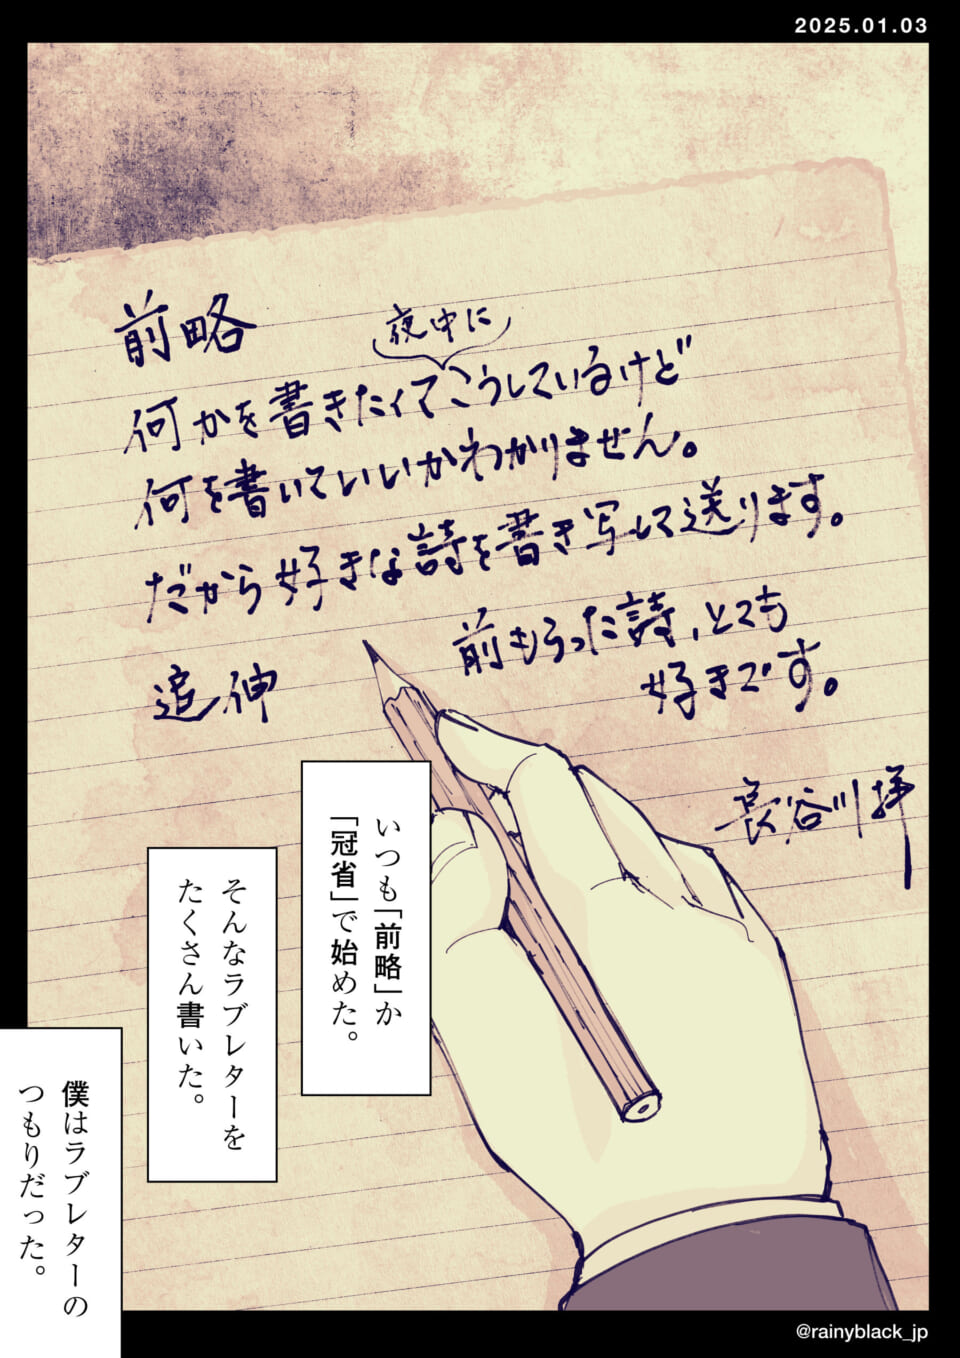 2025.01.03
前略
夜中に
何かを書きたくてこうしているけど
何を書いていいかわかりません。
だから好きな詩を書き写して送ります。
追伸
前もらった詩、とても
好きです。
長谷川拝
いつも「前略」か
「冠省」で始めた。
そんなラブレターを
たくさん書いた。
僕はラブレターの
つもりだった。
@rainyblack_jp